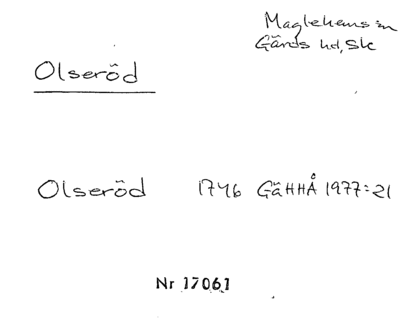 Maglehems sn
Gärds hd, Sk
Olseröd
Olseröd 1746 GäHHÅ 1977:21
Nr 17061